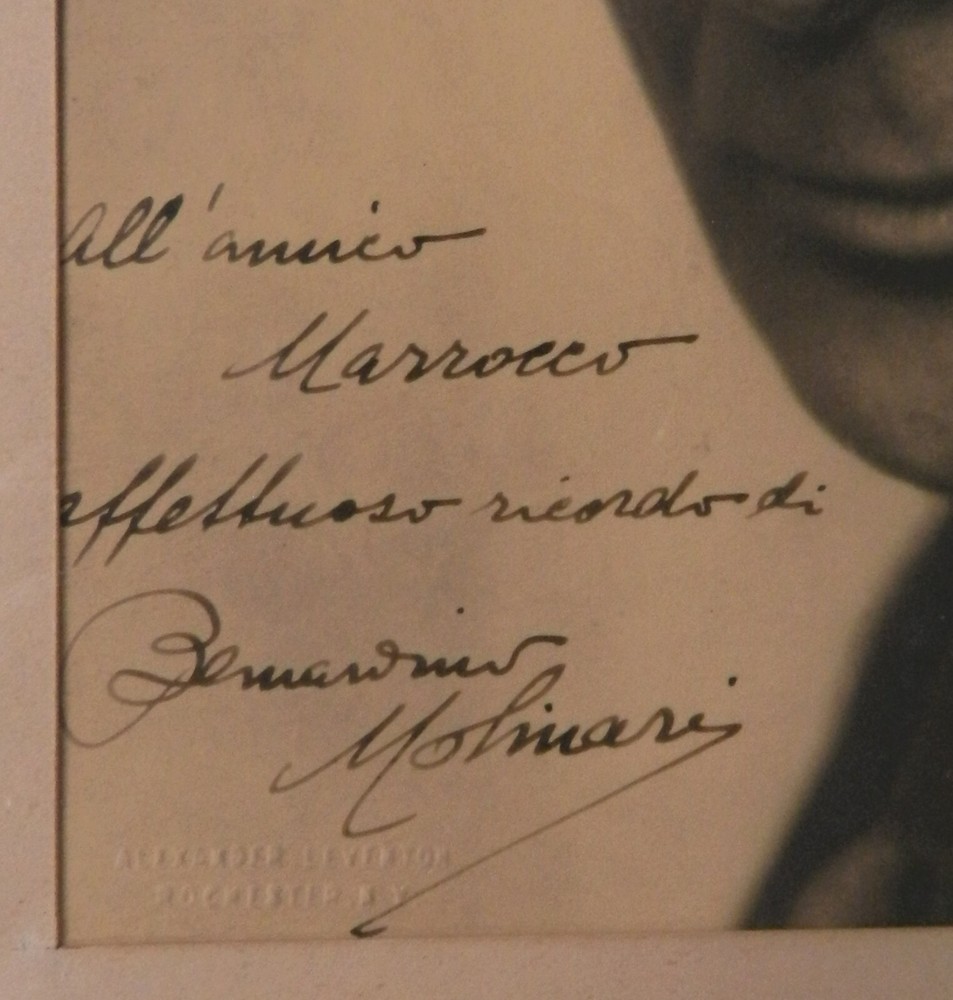 All'amico
Marrocco
affettuoso ricordo di
Bernardino
Molinari
ALEXANDER LEVENTON
ROCHESTER N.Y.